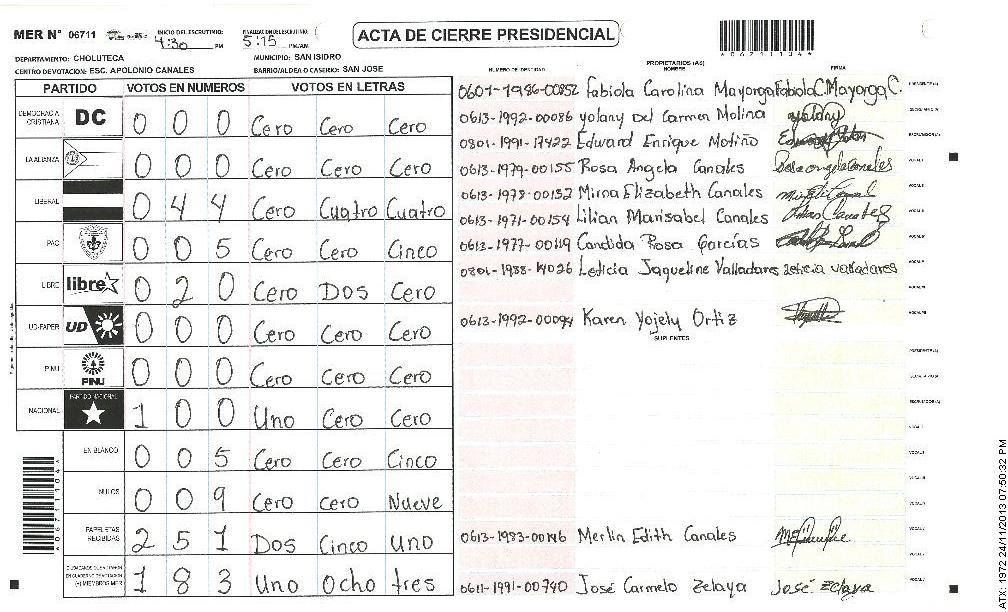 MER Nº 06711
INICIO DEL ESCRUTINIO: 4:30 PM
FINALIZACION DE ESCRUTINIO: 5:15 PM/AM
ACTA DE CIERRE PRESIDENCIAL
A067111044
DEPARTAMENTO: CHOLUTECA
MUNICIPIO: SAN ISIDRO
CENTRO DE VOTACION: ESC. APOLONIO CANALES
BARRIO/ALDEA O CASERIO: SAN JOSE
PARTIDO VOTOS EN NUMEROS VOTOS EN LETRAS
DEMOCRACIA CRISTIANA DC 0 0 0 Cero Cero Cero
LA ALIANZA 0 0 0 Cero Cero Cero
LIBERAL 0 4 4 Cero Cuatro Cuatro
PAC 0 0 5 Cero Cero Cinco
LIBRE libre 0 2 0 Cero Dos Cero
UD-FAPER UD 0 0 0 Cero Cero Cero
PINU PINU 0 0 0 Cero Cero Cero
NACIONAL PARTIDO NACIONAL 1 0 0 Uno Cero Cero
EN BLANCO 0 0 5 Cero Cero Cinco
NULOS 0 0 9 Cero cero Nueve
PAPELETAS RECIBIDAS 2 5 1 Dos Cinco uno
CIUDADANOS QUE VOTARON EN CUADERNO DE VOTACION (+) MIEMBROS MER 1 8 3 Uno Ocho tres
NUMERO DE IDENTIDAD PROPIETARIOS (AS) NOMBRE FIRMA
Fabiola Carolina Mayorga Fabiola C. Mayorga C. PRESIDENTE (A)
0613-1992-00086 yolany Del Carmen Molina yolany SECRETARIO (A)
0801-1991-17422 Edward Enrique Motiño ESCRUTADOR (A)
0613-1979-00155 Rosa Angela Canales Rosa angela canales VOCAL I
Mirna Elizabeth Canales
0613-1971-00154 Lilian Marisabel Canales
0613-1977-00119 Candida Rosa Garcías
Leticia Jaqueline Valladares leticia valladares
0613-1992-00094 Karen Yojely Ortiz
SUPLENTES
Merlin Edith Canales
0611-1991-00740 José Carmelo Zelaya José zelaya
ATX 1972 24/11/2013 07:50:32 PM